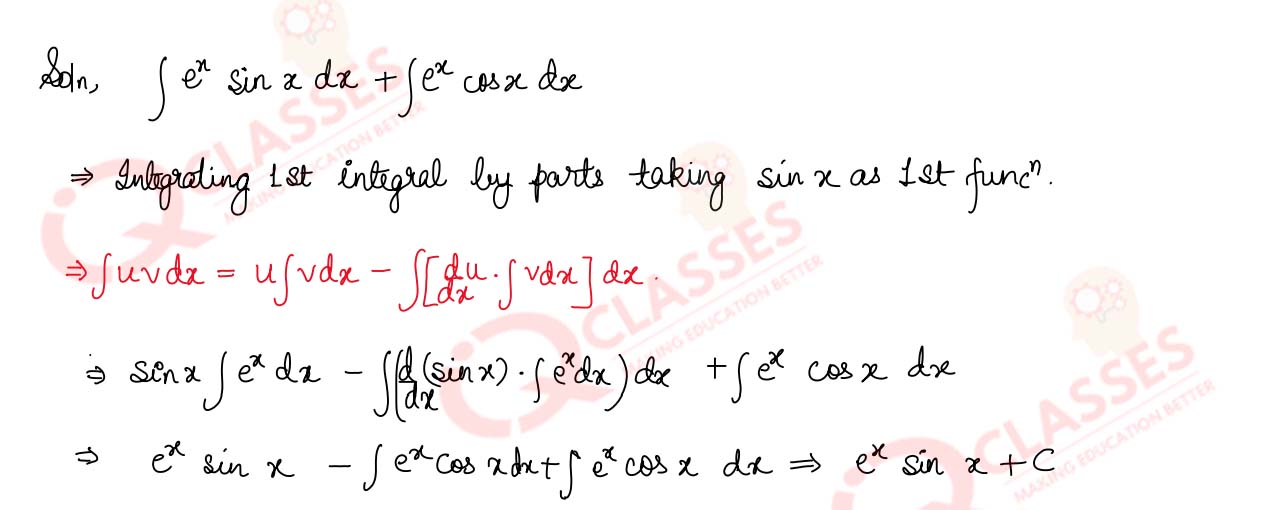 Soln, ∫ eˣ sin x dx + ∫ eˣ cos x dx
⇒ Integrating 1st integral by parts taking sin x as 1st funcⁿ.
⇒ ∫ u v dx = u ∫ v dx − ∫ [du/dx · ∫ v dx] dx.
⇒ sin x ∫ eˣ dx − ∫ (d/dx (sin x) · ∫ eˣ dx) dx + ∫ eˣ cos x dx
⇒ eˣ sin x − ∫ eˣ cos x dx + ∫ eˣ cos x dx ⇒ eˣ sin x + C
IQ CLASSES
MAKING EDUCATION BETTER
IQ CLASSES
MAKING EDUCATION BETTER
IQ CLASSES
MAKING EDUCATION BETTER